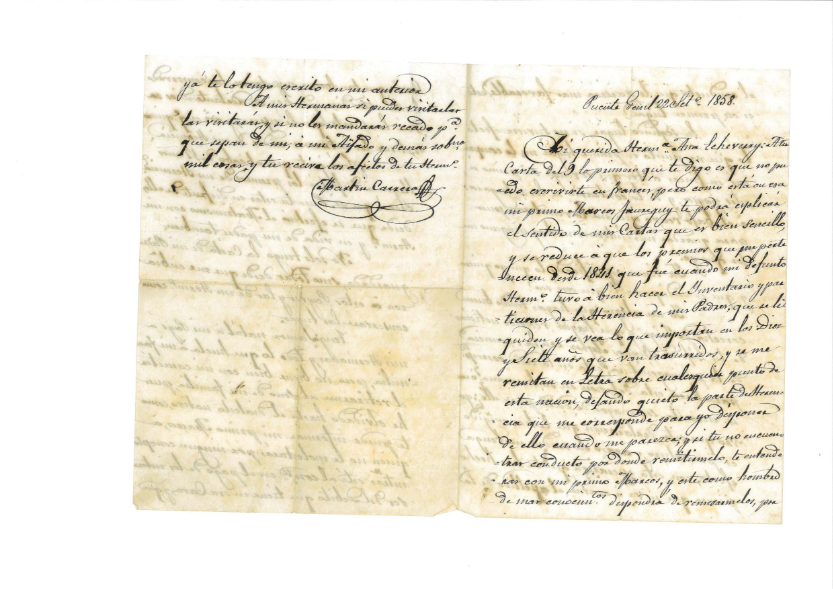 Puente Genil 29 Set.e 1858.
Mi querida Herm.a Ana Echeverry: A tu
Carta del 9 lo primero que te digo es que no pu-
-edo escrivirte en frances, pero como está en esa
mi primo Marcos Jaureguy te podrá esplicar
el sentido de mis Cartas que es bien sencillo,
y se reduce á que los premios que me perte
necen desde 1841 que fué cuando mi defunto
Herm.o tuvo á bien hacer el Inventario y par
ticiones de la Herencia de mis Padres, que se li
quiden y se vea lo que importan en los Dies
y Siete años que van trascurridos, y se me
remitan en Letra sobre cualesquier punto de
esta nacion, dejando quieto la parte de Heren-
cia que me corresponde para yo disponer
de ello cuando me paresca; y si tu no encuen-
trar conducto por donde remitirmelo, te entende
rás con mi primo Marcos, y este como hombre
de mas conocim.tos dispondra de remesarmelos, por
yá te lo tengo escrito en mi anterior
A mis Hermanas si puedes visitarlas
las visitarás, y si no les mandarás recado p.a
que sepan de mi, á mi Aifado y demás sob.nos
mil cosas, y tu recive los afectos de tu Herm.o
Martin Carrera